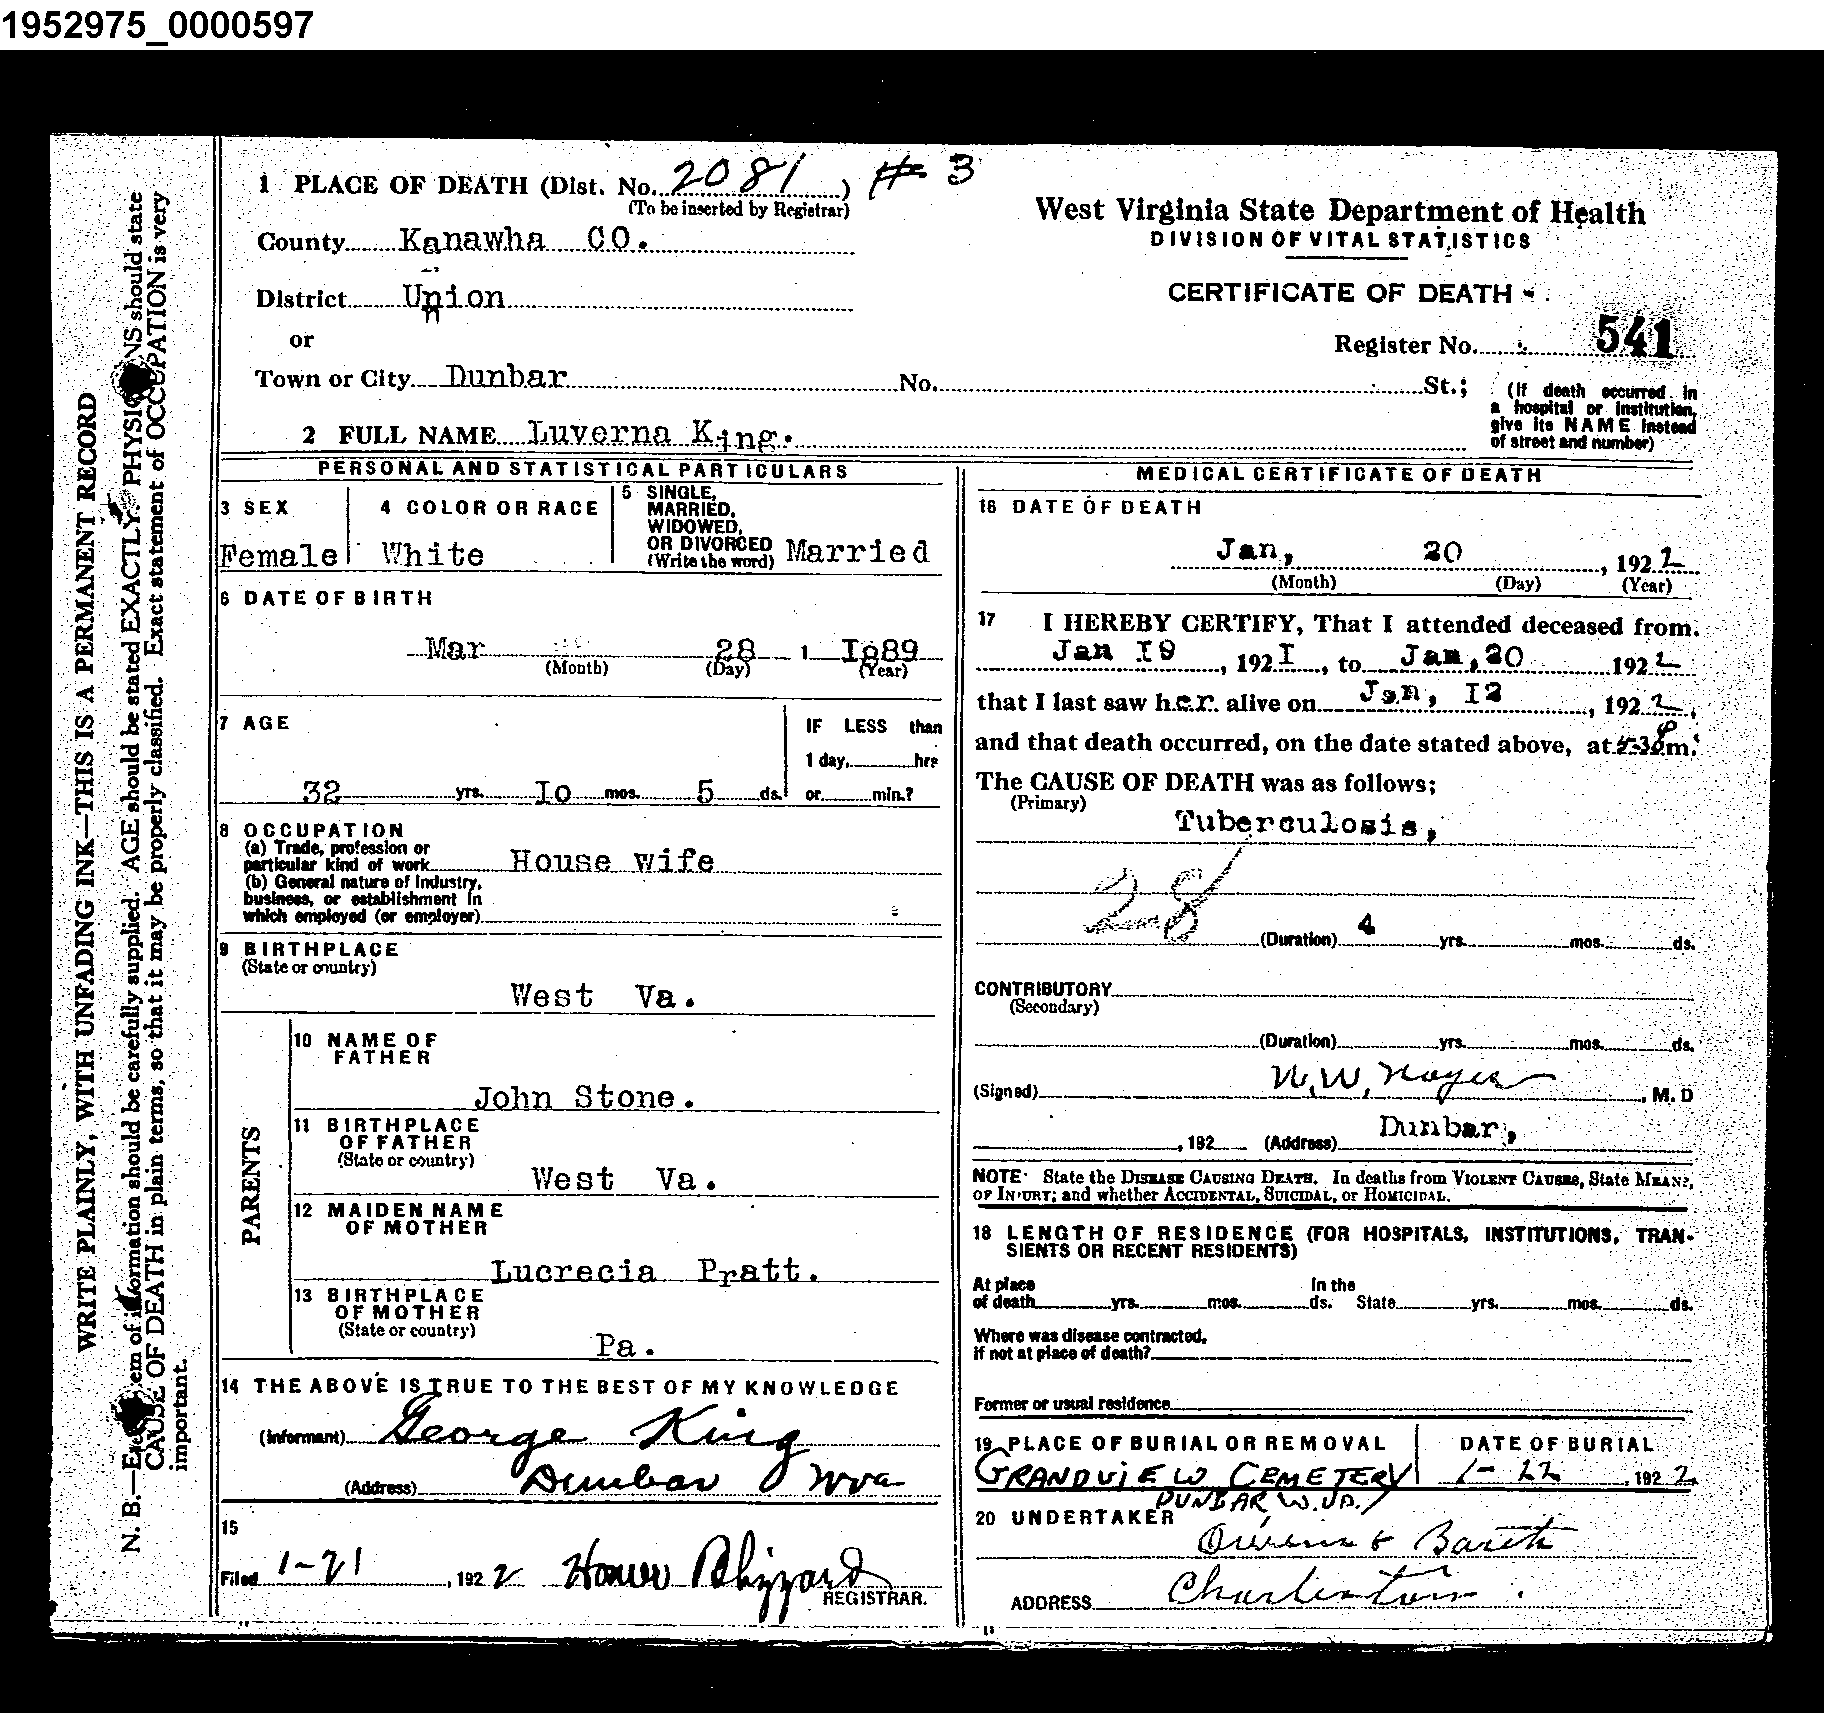 1952975_0000597
1 PLACE OF DEATH (Dist. No. 2081 ) # 3
(To be inserted by Registrar)
County Kanawha CO.
District Union
or
Town or City Dunbar No. St.; (If death occurred in a hospital or institution, give its NAME instead of street and number)
2 FULL NAME Luverna King.
West Virginia State Department of Health
DIVISION OF VITAL STATISTICS
CERTIFICATE OF DEATH
Register No. 541
PERSONAL AND STATISTICAL PARTICULARS
3 SEX
Female
4 COLOR OR RACE
White
5 SINGLE, MARRIED, WIDOWED, OR DIVORCED (Write the word) Married
6 DATE OF BIRTH
Mar 28 1 I889
(Month) (Day) (Year)
7 AGE
32 yrs. Io mos. 5 ds.
IF LESS than
1 day, hrs
or min.?
8 OCCUPATION
(a) Trade, profession or
particular kind of work House wife
(b) General nature of Industry,
business, or establishment in
which employed (or employer)
9 BIRTHPLACE
(State or country)
West Va.
PARENTS
10 NAME OF
FATHER
John Stone.
11 BIRTHPLACE
OF FATHER
(State or country)
West Va.
12 MAIDEN NAME
OF MOTHER
Lucrecia Pratt.
13 BIRTHPLACE
OF MOTHER
(State or country)
Pa.
14 THE ABOVE IS TRUE TO THE BEST OF MY KNOWLEDGE
(Informant) George King
(Address) Dunbar Wva
15
Filed 1-21, 1922 Homer Blizzard
REGISTRAR.
MEDICAL CERTIFICATE OF DEATH
16 DATE OF DEATH
Jan, 20, 1922
(Month) (Day) (Year)
17 I HEREBY CERTIFY, That I attended deceased from
Jan I9, 192I, to Jan, 20 1922
that I last saw her alive on Jan, I2, 1922,
and that death occurred, on the date stated above, at m.
The CAUSE OF DEATH was as follows;
(Primary)
Tuberculosis,
28
(Duration) 4 yrs. mos. ds.
CONTRIBUTORY
(Secondary)
(Duration) yrs. mos. ds.
(Signed) W. Noyes, M. D
, 192 (Address) Dunbar,
NOTE: State the DISEASE CAUSING DEATH. In deaths from VIOLENT CAUSES, State MEANS,
OF INJURY; and whether ACCIDENTAL, SUICIDAL, or HOMICIDAL.
18 LENGTH OF RESIDENCE (FOR HOSPITALS, INSTITUTIONS, TRAN-
SIENTS OR RECENT RESIDENTS)
At place In the
of death yrs. mos. ds. State yrs. mos. ds.
Where was disease contracted,
if not at place of death?
Former or usual residence
19 PLACE OF BURIAL OR REMOVAL
GRANDVIEW CEMETERY
DUNBAR, W.VA.
DATE OF BURIAL
1-22, 1922
20 UNDERTAKER
&
ADDRESS Charleston
WRITE PLAINLY, WITH UNFADING INK—THIS IS A PERMANENT RECORD
N. B.—Every item of information should be carefully supplied. AGE should be stated EXACTLY. PHYSICIANS should state
CAUSE OF DEATH in plain terms, so that it may be properly classified. Exact statement of OCCUPATION is very
important.